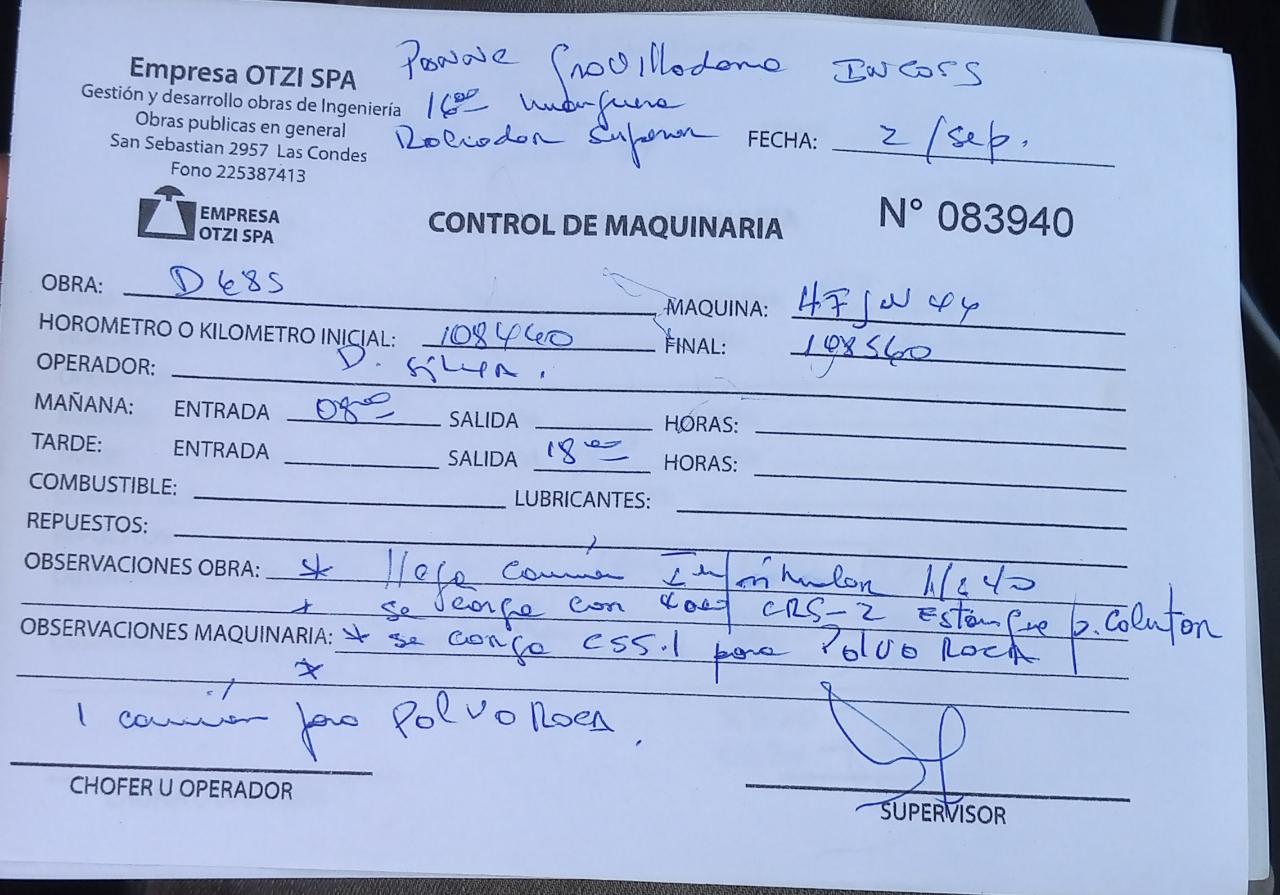 Empresa OTZI SPA
Gestión y desarrollo obras de Ingeniería
Obras publicas en general
San Sebastian 2957 Las Condes
Fono 225387413
EMPRESA
OTZI SPA
16 00 manguera
Rociador Superior
FECHA: 2/sep.
CONTROL DE MAQUINARIA
N° 083940
OBRA: D 685 MAQUINA:
HOROMETRO O KILOMETRO INICIAL: 108460 FINAL: 108560
OPERADOR: D. Silva.
MAÑANA: ENTRADA 08 00 SALIDA HORAS:
TARDE: ENTRADA SALIDA 18 00 HORAS:
COMBUSTIBLE: LUBRICANTES:
REPUESTOS:
OBSERVACIONES OBRA: * llega camión
* se carga con CRS-2 Estanque p.
OBSERVACIONES MAQUINARIA: * se carga CSS.1 para Polvo Roca
*
1 camión para Polvo Roca.
CHOFER U OPERADOR
SUPERVISOR